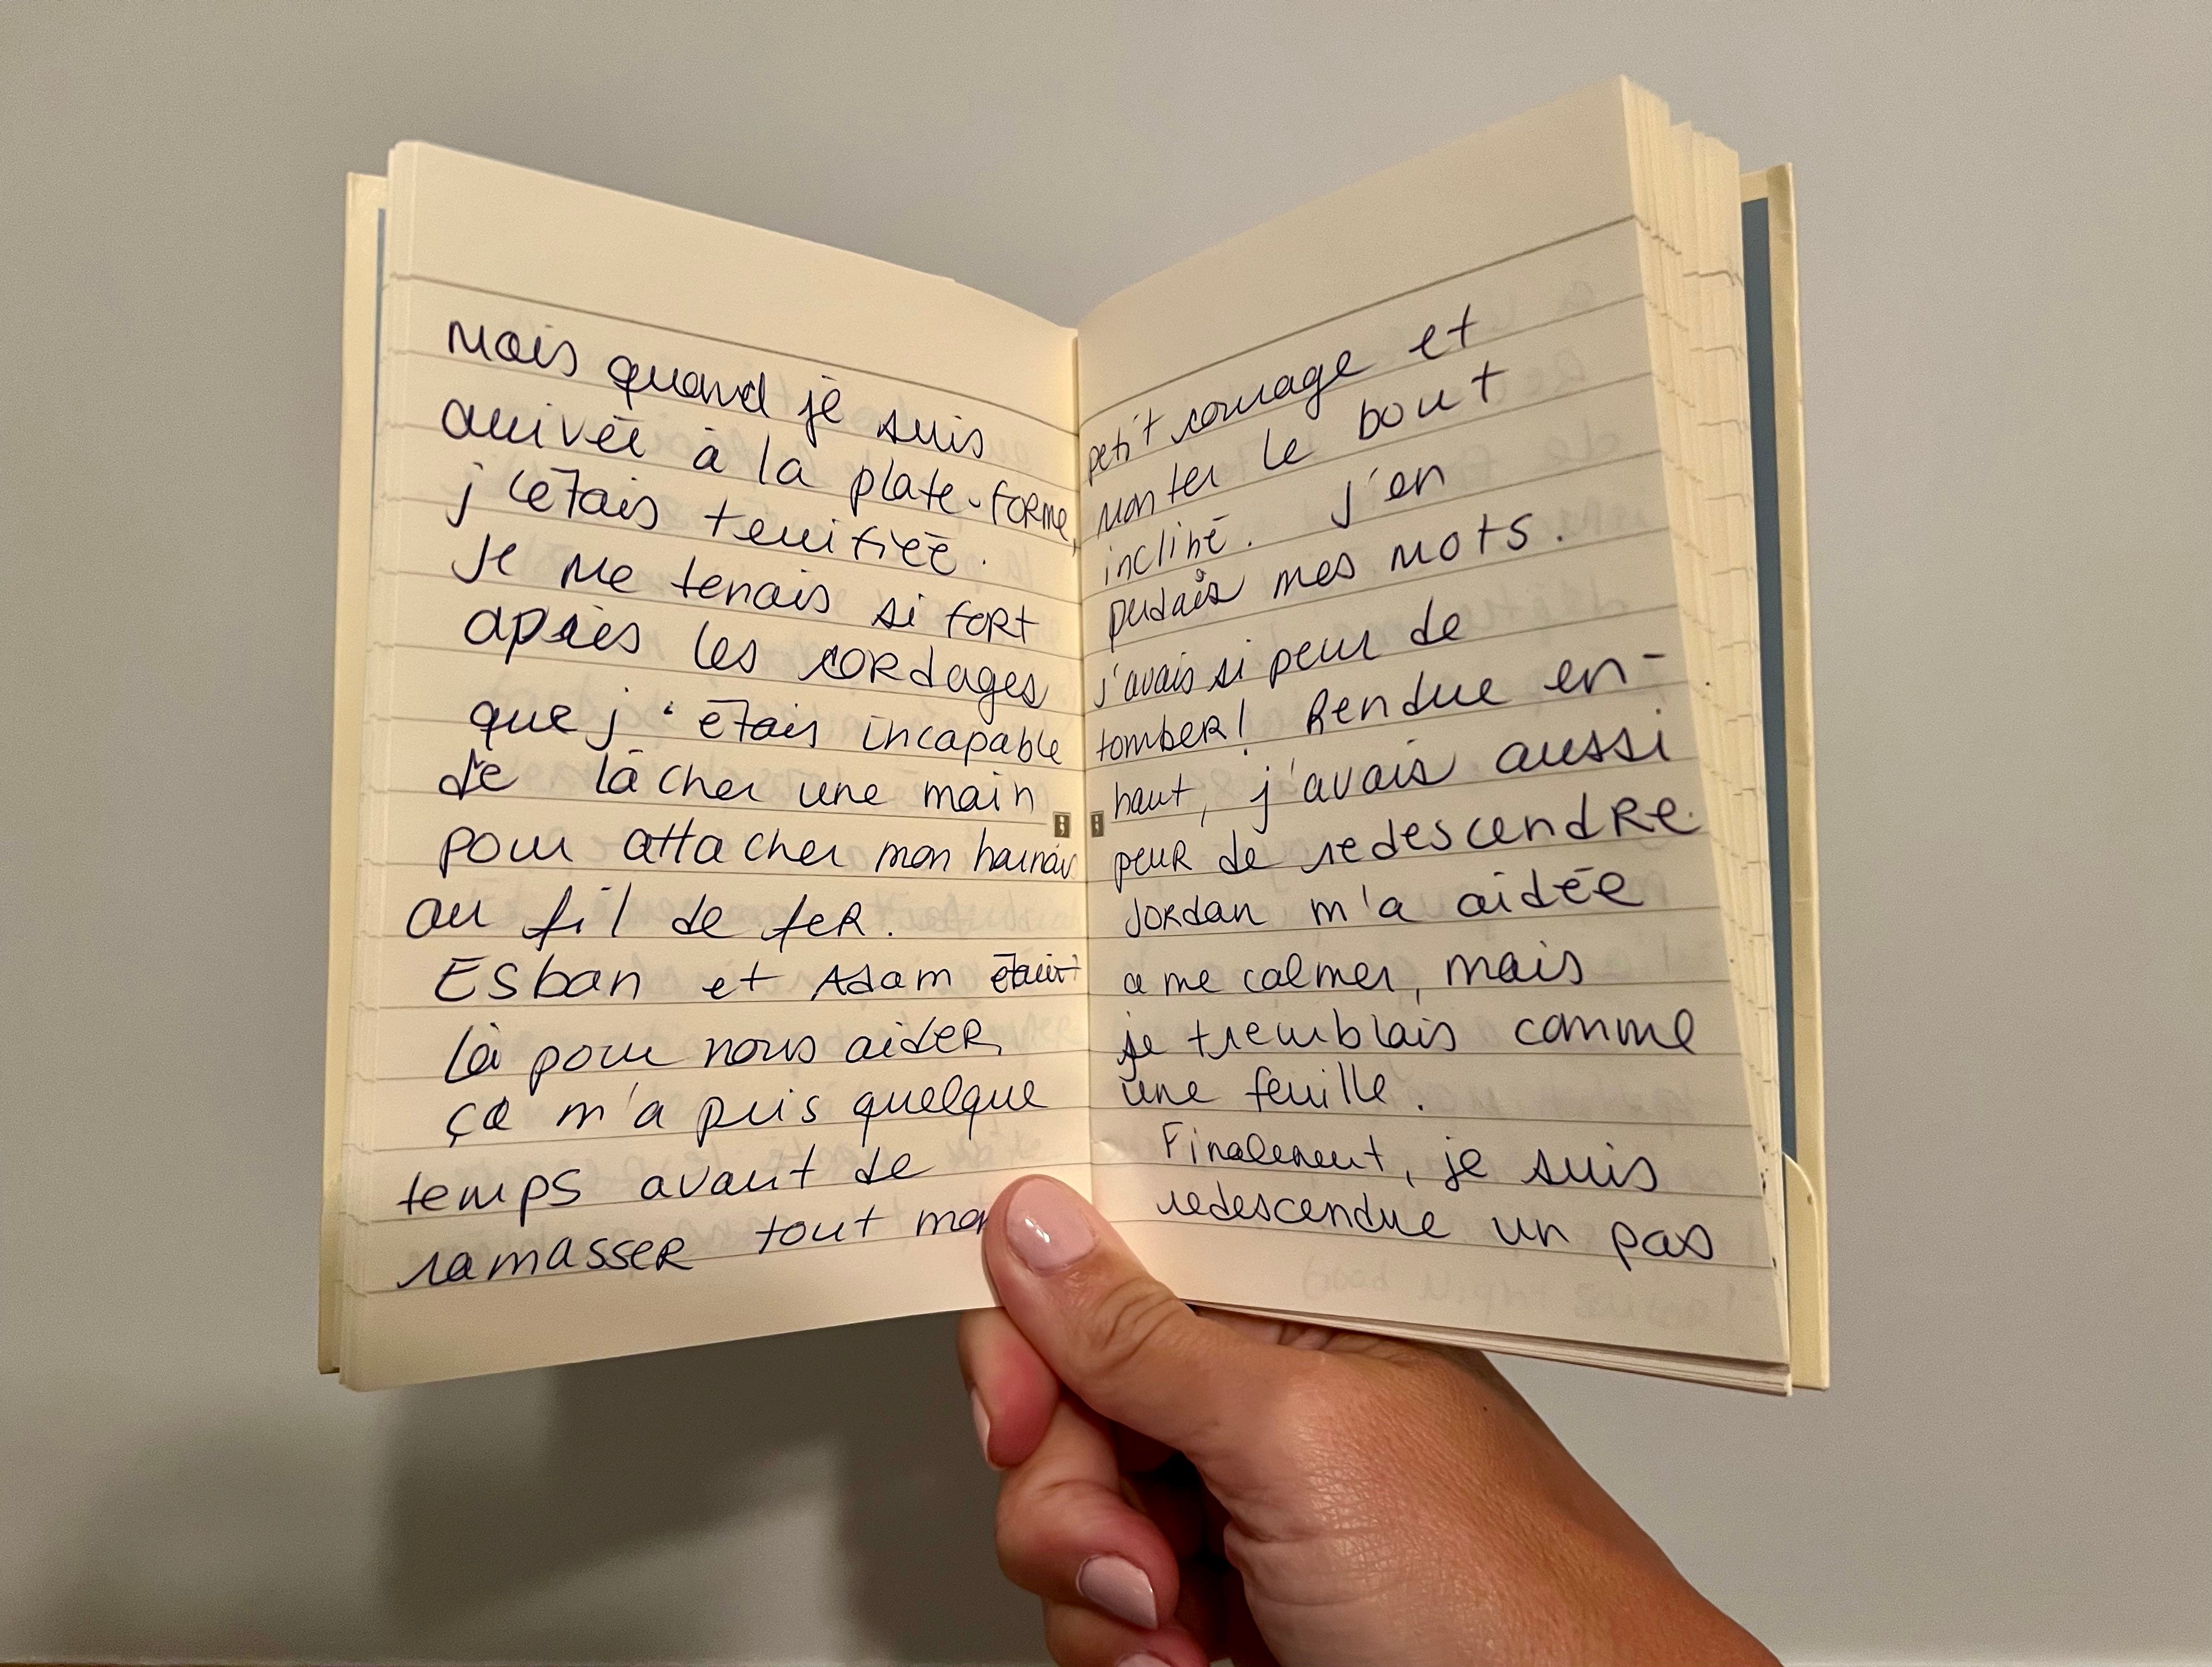 Mais quand je suis
arrivée à la plate-forme,
j'étais terrifiée.
Je me tenais si fort
après les cordages
que j'étais incapable
de lâcher une main
pour attacher mon harnais
au fil de fer.
Esban et Adam étaient
là pour nous aider,
ça m'a pris quelque
temps avant de
ramasser tout mon
petit courage et
monter le bout
incliné. J'en
perdais mes mots.
j'avais si peur de
tomber! Rendue en-
haut, j'avais aussi
peur de redescendre.
Jordan m'a aidée
a me calmer, mais
je tremblais comme
une feuille.
Finalement, je suis
redescendue un pas